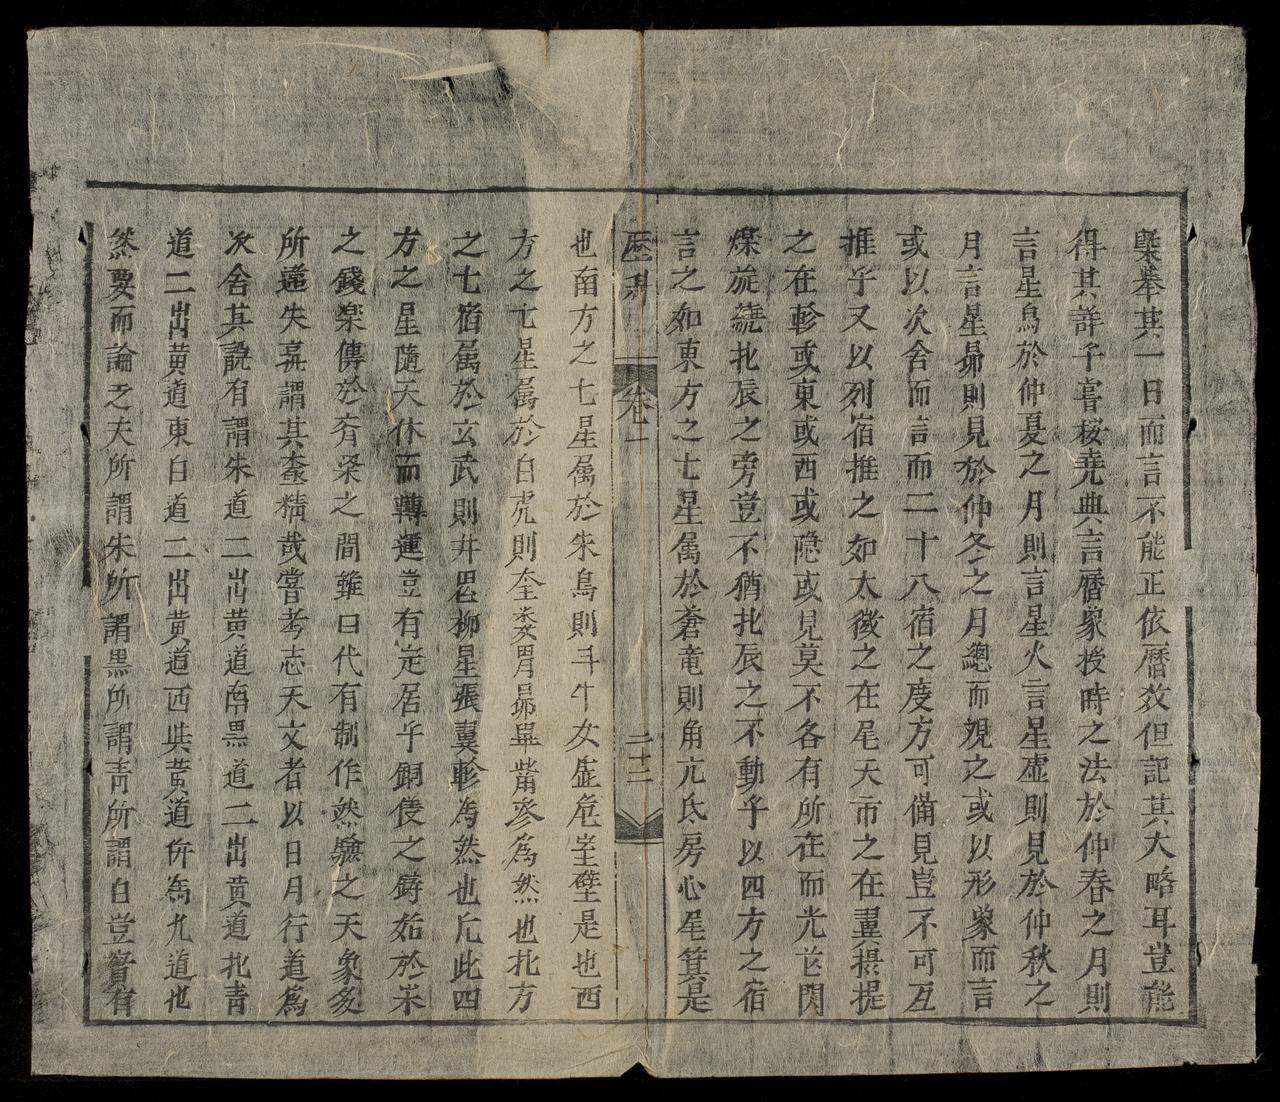 槩奉其一日而言不能正依曆效但記其大略耳豈能
得其詳予嘗桉堯典言曆象授時之法於仲春之月則
言星鳥於仲夏之月則言星火言星虛則見於仲秋之
月言星昴則見於仲冬之月總而覌之或以形象而言
或以次舍而言而二十八宿之度方可俻見豈不可互
推乎又以列宿推之如太微之在尾天市之在翼摂提
之在軫或東或西或隐或見莫不各有所在而光芒閃
煤旋繞北辰之旁豈不猶北辰之不動乎以四方之宿
言之如東方之七星属於蒼竜則角亢氐房心尾箕是
歷科 卷一 二十二
也南方之七星属於朱鳥則斗牛女虚危室壁是也西
方之七星属於白虎則奎婁胃昴畢觜參為然也北方
之七宿属於玄武則井鬼柳星張翼軫為然也凡此四
方之星隨天休而轉運豈有定居乎銅儀之鋳始於宋
之錢楽傳於斉梁之間雖曰代有制作然驗之天象多
所違失熹謂其㤗精哉嘗考志天文者以日月行道為
次舍其說有謂朱道二出黄道南黒道二出黄道北青
道二出黄道東白道二出黄道西與黄道併為九道也
然要而論之夫所謂朱所謂黒所謂青所謂白豈實有